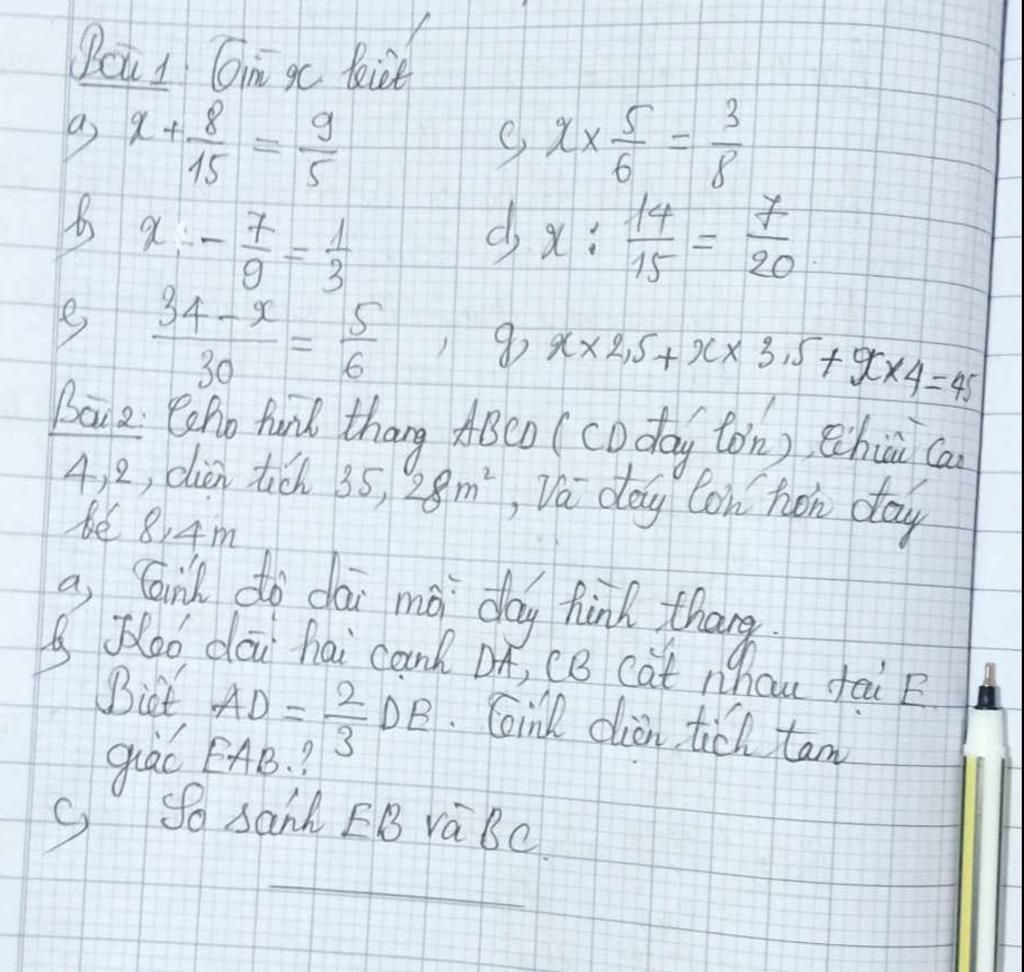 Bài 1: Tìm x biết
a, x + 8/15 = 9/5 c, x × 5/6 = 3/8
b, x - 7/9 = 1/3 d, x : 14/15 = 7/20
e, (34 - x)/30 = 5/6 , g, x × 2,5 + x × 3,5 + x × 4 = 45
Bài 2: Cho hình thang ABCD (CD đáy lớn), chiều cao
4,2, diện tích 35,28m², và đáy lớn hơn đáy
bé 8,4m
a, Tính độ dài mỗi đáy hình thang.
b, Kéo dài hai cạnh DA, CB cắt nhau tại E.
Biết AD = 2/3 DE. Tính diện tích tam
giác EAB.?
c, So sánh EB và BC.